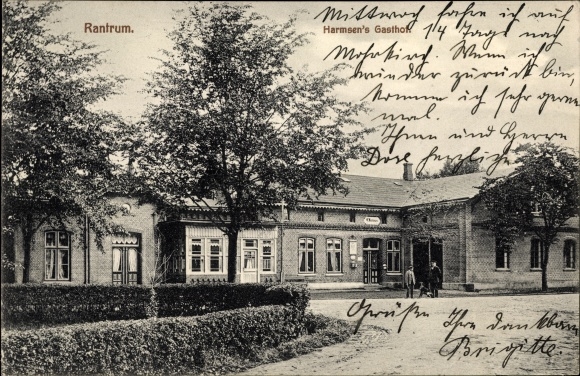 Rantrum.
Harmsen's Gasthof.
Mittwoch fahre ich auf
14 Tage nach
Mohrkirch. Wenn ich
wieder zurück bin,
komme ich sehr gern
mal.
Ihnen und Herrn
herzliche
Grüße Ihre dankbare
Brigitte.